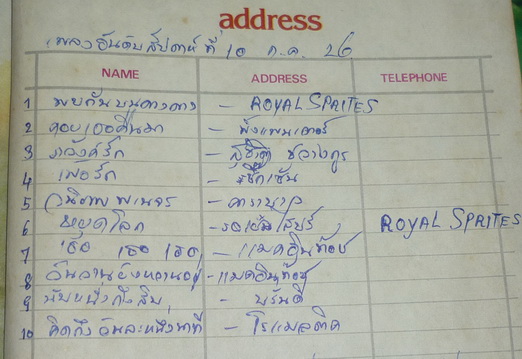 address
เพลงอันดับสัปดาห์ที่ 10 ก.ค. 26
NAME ADDRESS TELEPHONE
1 พบกันบนทางต่าง - ROYAL SPRITES
2 คอยเธอคืนมา - พิ้งแพนเตอร์
3 ภวังค์รัก - สุชาติ ชวางกูร
4 เพ้อรัก
5 วณิพก พเนจร - คาราบาว
6 หยุดโลก - รอยัลสไปร์ ROYAL SPRITES
7 เธอ เธอ เธอ - แมคอินทอช
8 วันวานยังหวานอยู่ - แมคอินทอช
9 นับหนึ่งถึงสิบ - บรั่นดี
10 คิดถึงวันละหนึ่งนาที - โรแมนติค